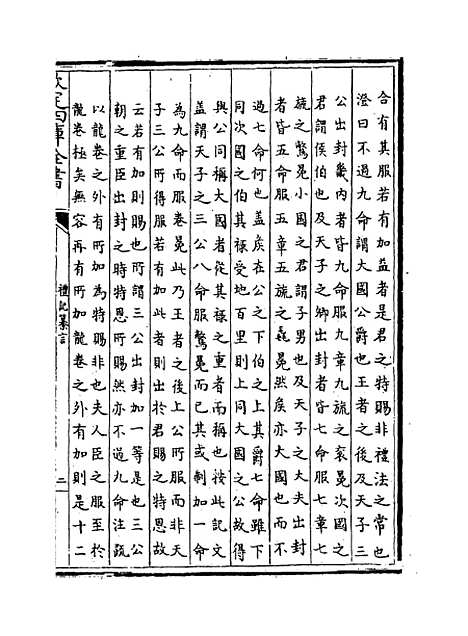 合有其服若有加益者是君之特賜非禮法之常也
澄曰不過九命謂大國公爵也王者之後及天子三
公出封畿內者皆九命服九章九旒之衮冕次國之
君謂侯伯也及天子之卿出封者皆七命服七章七
旒之鷩冕小國之君謂子男也及天子之大夫出封
者皆五命服五章五旒之毳冕然侯亦大國也而不
過七命何也蓋侯在公之下伯之上其爵七命雖下
同次國之伯其祿受地百里則上同大國之公故得
與公同稱大國者從其祿之重者而稱也按此記文
蓋謂天子之三公八命服鷩冕而已其或制加一命
為九命而服卷冕此乃王者之後上公所服而非天
子三公所得服若有加此者則出於君賜之特恩故
云若有加則賜也所謂三公出封加一等是也三公
朝之重臣出封之時特恩所賜然亦不道九命注疏
以龍卷之外有所加為特賜非也夫人臣之服至於
龍卷極矣無容再有所加龍卷之外有加則是十二
欽定四庫全書
禮記纂言
二